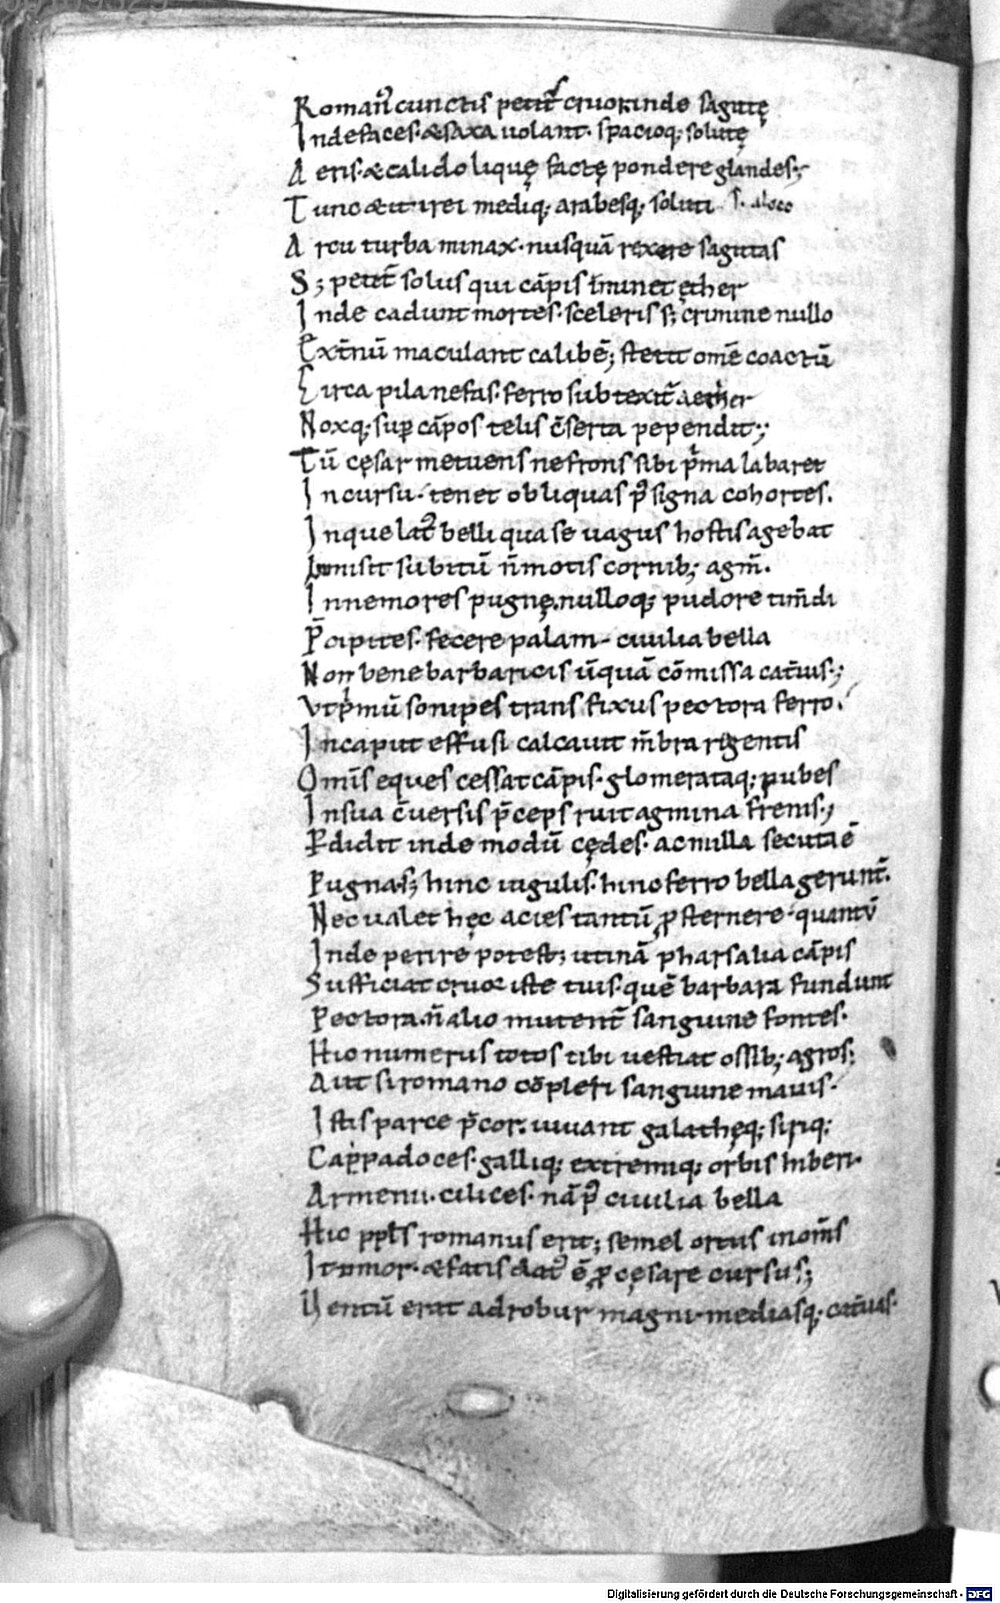 Romanꝰ cunctis petit᷑ cruor. inde sagittę
Inde faces. & saxa uolant. spacioq; solutę
Aeris. & calido liquę factę pondere glandes;
Tunc & it᷑irei mediq; arabesq; soluti s. a loco
Arcu turba minax. nusquā rexere sagittas
S; petit᷑ solus qui cāpis īminet ęther
Inde cadunt mortes. sceleris s; crimine nullo
Ext̄nū maculant calibē; stetit omē coactū
Circa pila nefas. ferro subtexit᷑ aether
Noxq; sup cāpos telis c̄serta pependit;
Tū cęsar metuens ne frons sibi p̄ma labaret
Incursu. tenet obliquas p̄ signa cohortes.
Inque latꝰ belli qua se uagus hostis agebat
Inmisit subitū n̄ motis cornib; agm̄.
Innemores pugnę. nulloq; pudore timēdi
P̄cipites. fecere palam ciuilia bella
Non bene barbaricis ūquā cōmissa cat̄uis;
Vt p̄mū sonipes transfixus pectora ferro.
In caput effusi calcauit m̄bra regentis
Om̄is eques cessat cāpis. glomerataq; pubes
In sua c̄uersis p̄ceps ruit agmina frenis;
Pdidit inde modū cędes. ac nulla secuta ē
Pugna s; hinc iugulis. hinc ferro bella gerunt᷑.
Nec ualet hęc acies tantū ꝓsternere. quantū
Inde perire potest; utinā pharsalia cāpis
Sufficiat cruor iste tuis. quē barbara fundunt
Pectora. n̄ alio mutent᷑ sanguine fontes.
Hic numerus totos tibi uestiat ossib; agros;
Aut si romano cōpleri sanguine mauis.
Istis parce p̄cor. uiuant galathęq; sirięq;
Cappadoces. galliq; extremiq; orbis hiberi.
Armenii. cilices. nā p̄ ciuilia bella
Hic ppl̄s romanus erit; semel ortus in om̄s
It timor. & fatis datꝰ ē ꝓ cęsare cursus;
Uentū erat ad robur magni. mediasq; cat̄uas.
Digitalisierung gefördert durch die Deutsche Forschungsgemeinschaft - DFG